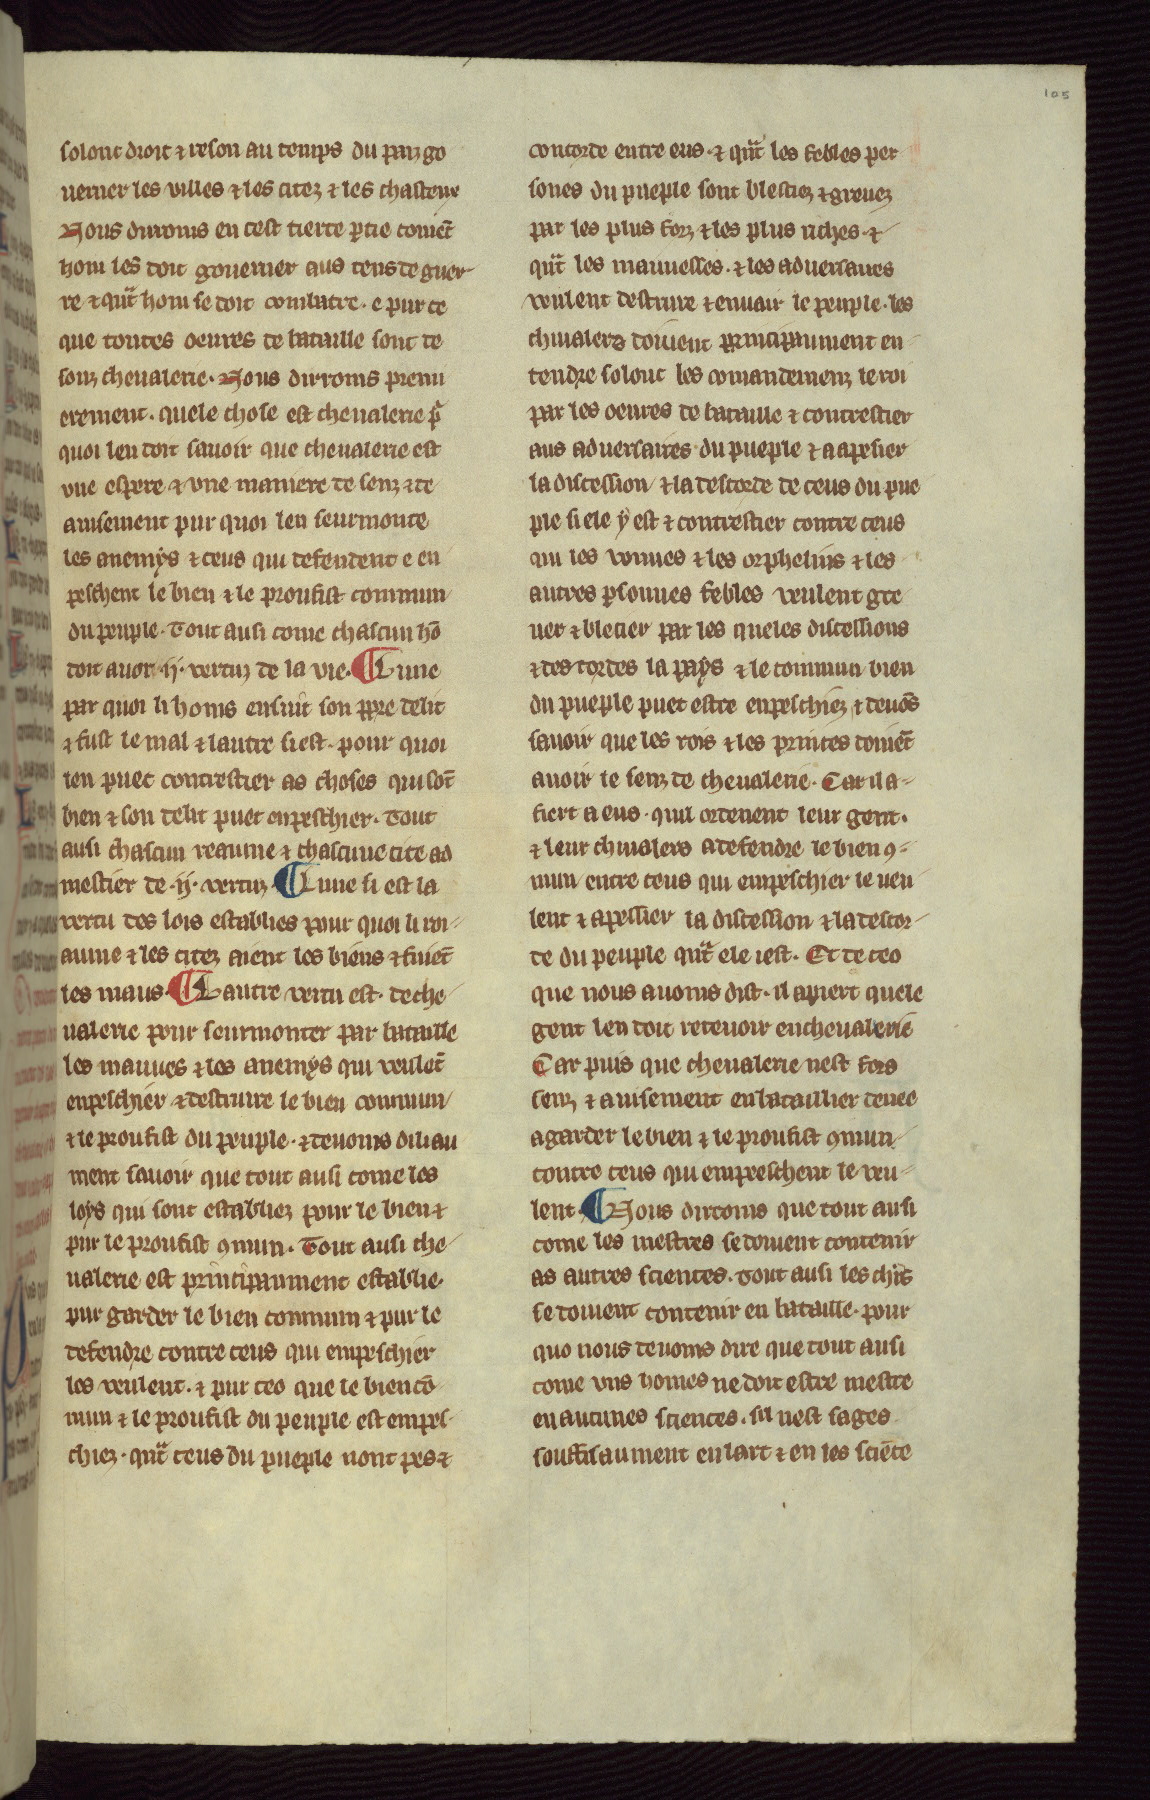 105
solonc droit ⁊ reson au temps du paiz go
uerner les villes ⁊ les citez ⁊ les chasteue
Nous dirroms en cest tierce ꝑtie comēt
hom les doit gouerner aus tens de guer
re ⁊ qūt hom se doit combatre · e pur ce
que toutes oeures de bataille sont de
souz cheualerie · Nous dirroms premi
erement · quele chose est cheualerie ꝑ
quoi len doit sauoir que cheualerie est
vne espece ⁊ vne maniere de senz ⁊ de
auisement pur quoi len seurmonte
les anemẏs ⁊ ceus qui defendent e en
peschent le bien ⁊ le proufist commun
du peuple · Tout ausi come chascun hō
doit auoir ·ij· vertuz de la vie · Lune
par quoi li homs ensuit son ꝓpre delit
⁊ fuit le mal ⁊ lautre si est · pour quoi
len puet contrestier as choses qui sōt
bien ⁊ son delit puet enpeschier · Tout
ausi chascun reaume ⁊ chascune cite ad
mestier de ·ij· vertuz · Lune si est la
vertu des lois establies pour quoi li roi-
aume ⁊ les citez aient les biens ⁊ fuiēt
les maus · Lautre vertu est · de che
ualerie pour seurmonter par bataille
les mauues ⁊ les anemẏs qui veulēt
enpeschier ⁊ destruire le bien commun
⁊ le proufist du peuple · ⁊ deuoms diliau
ment sauoir que tout ausi come les
loẏs qui sont establiez pour le bien ⁊
pur le proufist ꝯmun · Tout ausi che
ualerie est principaument establie
pur garder le bien commun ⁊ pur le
defendre contre ceus qui empeschier
les veulent · ⁊ pur ceo que le bien cō
mun ⁊ le proufist du peuple est empes
chiez · qūt ceus du pueple nont pes ⁊
concorde entre eus · ⁊ qūt les febles per
sones du pueple sont bleciez ⁊ greuez
par les plus forz ⁊ les plus riches · ⁊
qūt les mauuesses · ⁊ les aduersaires
veulent destruire ⁊ enuair le peuple · les
chiualers doiuent principaument en
tendre solonc les comandemenz le roi
par les oeures de bataille ⁊ contrestier
aus aduersaires du pueple ⁊ a apesier
la discession ⁊ la descorde de ceus du pue
ple si ele ẏ est ⁊ contrestier contre ceus
qui les venues ⁊ les orphelins ⁊ les
autres ꝑsonnes febles veulent gre
uer ⁊ blecier par les queles discessions
⁊ descordes la paẏs ⁊ le commun bien
du pueple puet estre enpeschiez ⁊ deuōs
sauoir que les rois ⁊ les princes doiuēt
auoir le senz de cheualerie · Car il a-
fiert a eus · quil ordenent leur gent ·
⁊ leur chiualers a defendre le bien ꝯ-
mun entre ceus qui empeschier le ueu
lent ⁊ apessier la discession ⁊ la descor
de du peuple qūt ele iest · Et de ceo
que nous auoms dist · il apiert quele
gent len doit retenoir en cheualerie
Car puis que cheualerie nest fors
senz ⁊ auisement en bataillier donee
a garder le bien ⁊ le proufist ꝯmun
contre ceus qui empeeschent le veu
lent · Nous dirroms que tout ausi
come les mestres se doiuent contenir
as autres sciences · Tout ausi les chīs
se doiuent contenir en bataille · pour
quo nous deuoms dire que tout ausi
come vns homes ne doit estre mestre
en aucunes sciences · sil nest sages
souffisaument en lart ⁊ en les sciēce